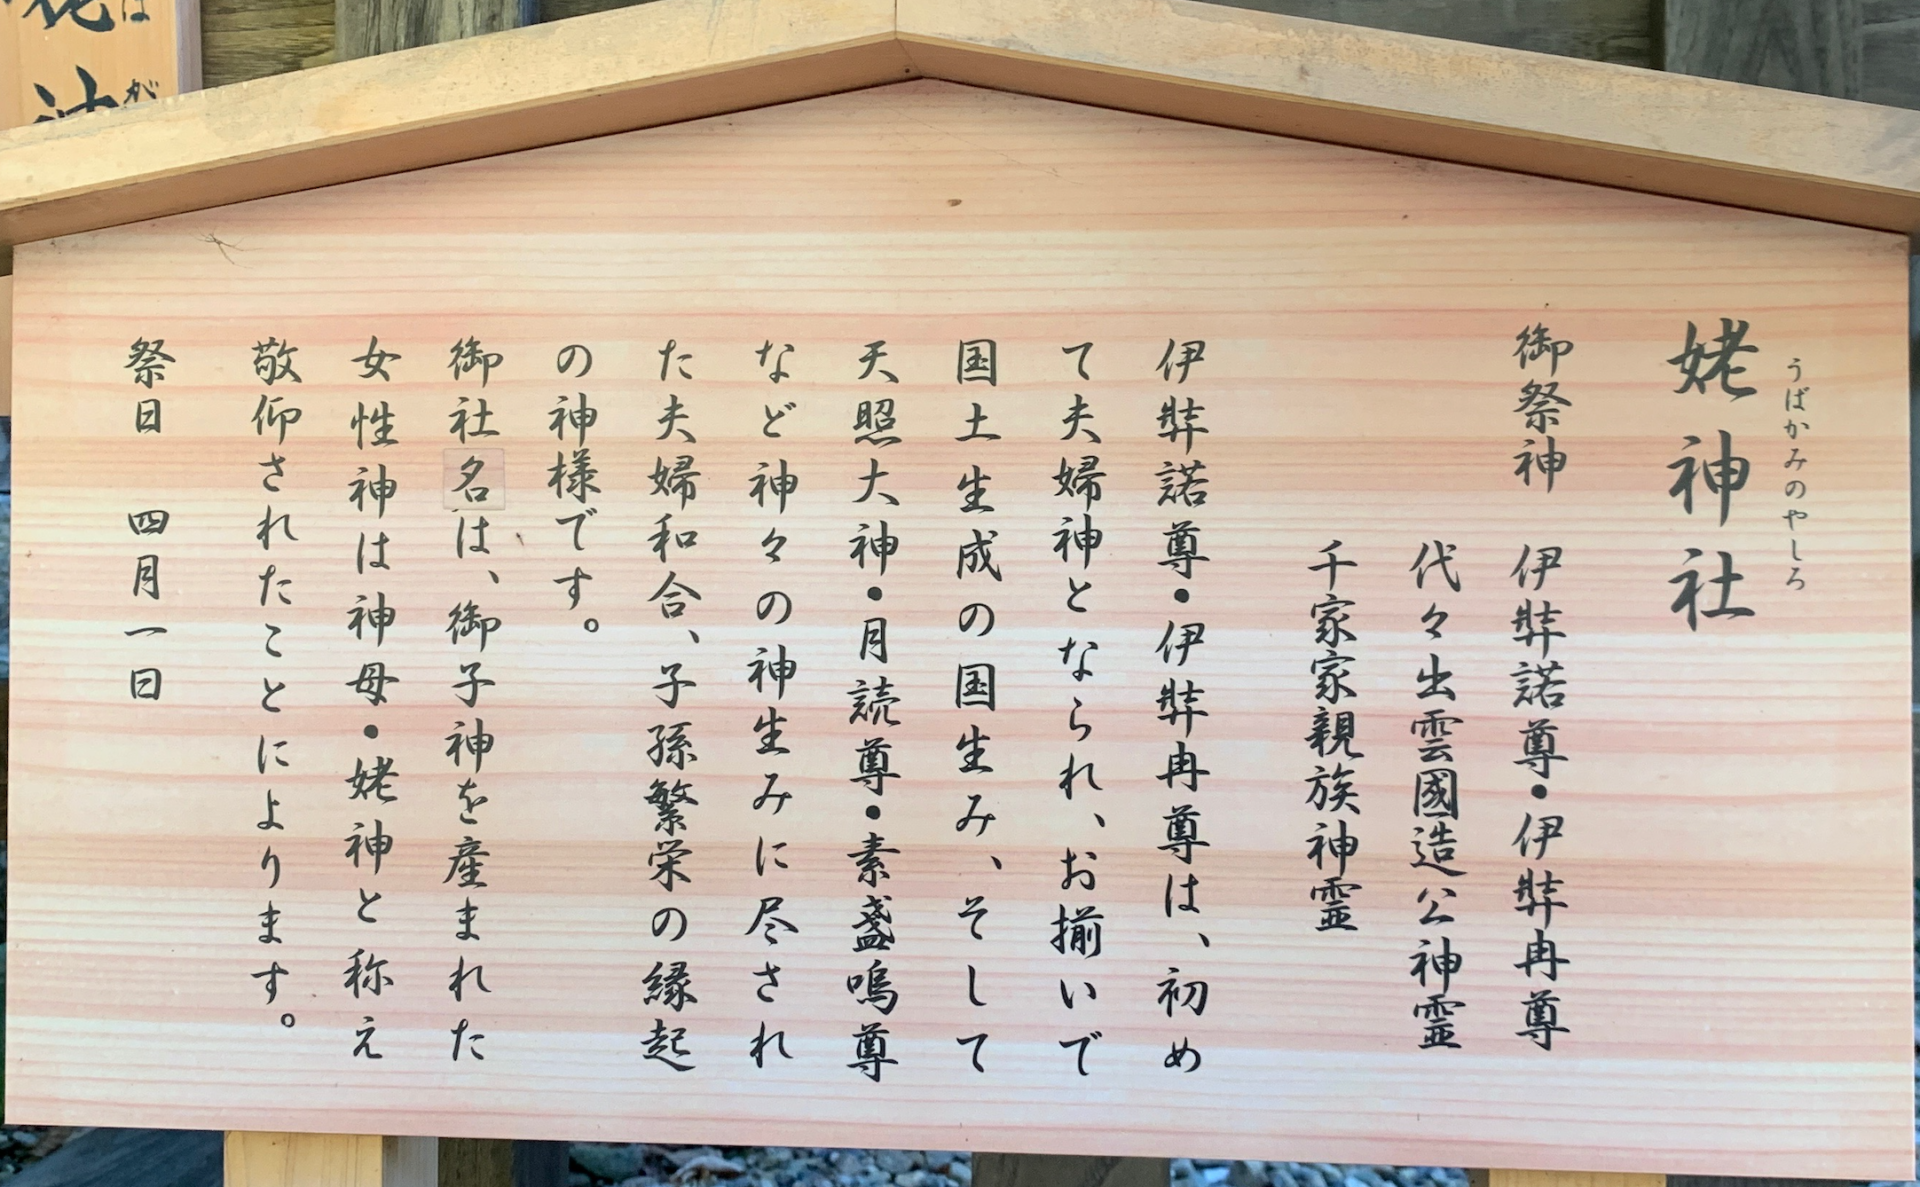 うばかみのやしろ
姥神社
御祭神 伊弉諾尊・伊弉冉尊
代々出雲國造公神霊
千家家親族神霊
伊弉諾尊・伊弉冉尊は、初め
て夫婦神となられ、お揃いで
国土生成の国生み、そして
天照大神・月読尊・素盞嗚尊
など神々の神生みに尽され
た夫婦和合、子孫繁栄の縁起
の神様です。
御社名は、御子神を産まれた
女性神は神母・姥神と称え
敬仰されたことによります。
祭日 四月一日